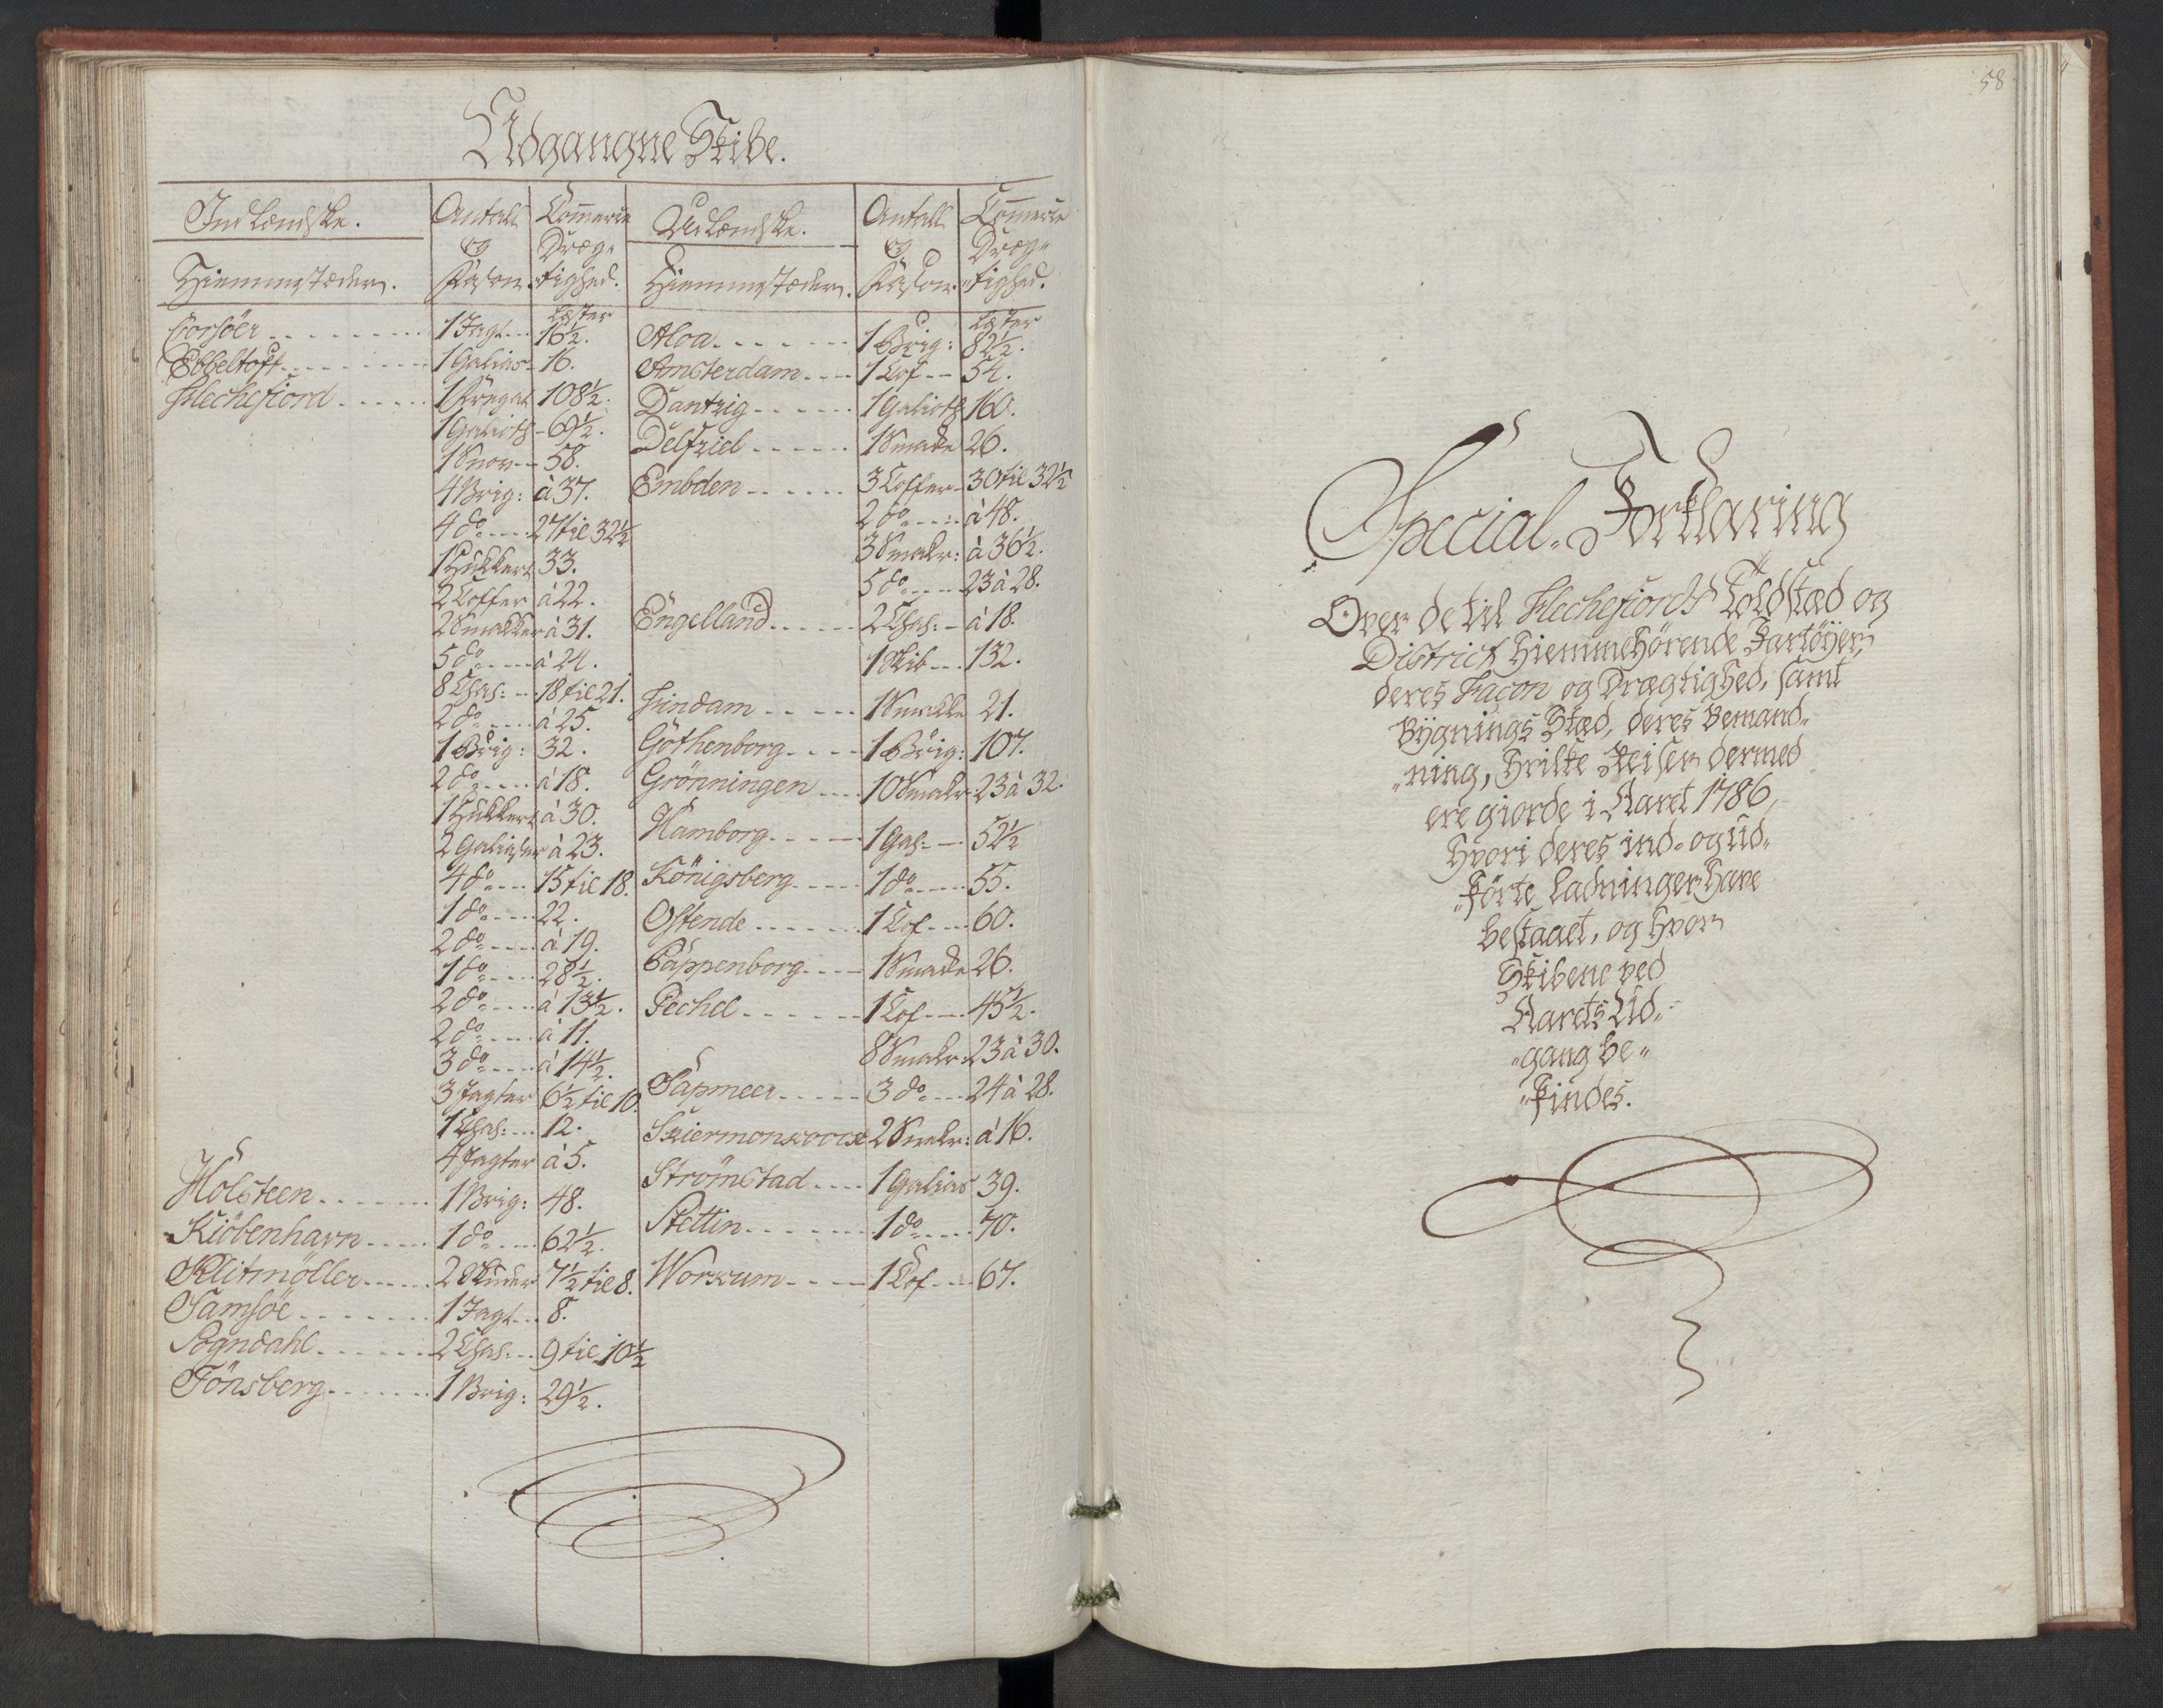 Udgangne Skibe.
Indlændske. Antall Commerce Udlændske. Antall Commerce
og Dræg- og Dræg-
Hiemmestæder. Façon. tighed. Hiemmestæder. Façon. tighed.
Læster Læster
Corsöer 1 Jagt 16½.
Ebbeltoft 1 Galias 16.
Flechefiord 1 Fregat 108½.
1 Galioth 69½.
1 Snov 58.
4 Brig: à 37.
4 do 27 til 32½
1 Hukkert 33.
2 Coffer à 22.
2 Smakker à 31.
5 do à 24.
8 Chas: 18 til 21.
2 do à 25.
1 Brig: 32.
2 do à 18.
1 Hukkert à 30.
2 Galiaser à 23.
4 do 15 til 18.
1 do 22.
2 do à 19.
1 do 28½.
2 do à 13½.
2 do à 11.
3 do à 14½.
3 Jagter 6½ til 10.
1 Chas: 12.
4 Jagter à 5.
Holsteen 1 Brig: 48.
Kiöbenhavn 1 do 62½.
Klitmöller 2 Skuder 7½ til 8.
Samsöe 1 Jagt 8.
Sogndahl 2 Chas: 9 til 10½
Tönsberg 1 Brig: 29½.
Aloa 1 Brig: 82½.
Amsterdam 1 Cof 54.
Dantzig 1 Galioth 160.
Delfziel 1 Smakke 26.
Embden 3 Coffer 30 til 32½
2 do à 48.
3 Smakr: à 36½.
5 do 23 à 28.
Engelland 2 Chas: à 18.
1 Skib 132.
Findam 1 Smakke 21.
Göthenborg 1 Brig: 107.
Grönningen 10 Smakr 23 à 32.
Hamborg 1 Gas: 52½
Königsberg 1 do 55.
Ostende 1 Cof 60.
Pappenborg 1 Smakke 26.
Pechel 1 Cof 45½.
8 Smakr: 23 à 30.
Sapmeer 3 do 24 à 28.
Skiermonkoog 2 Smakr: à 16.
Strömstad 1 Galias 39.
Stettin 1 do 70.
Workum 1 Cof 67.
58
Special-Forklaring
Over de til Flechefiords Toldstæd og
District Hiemmehörende Fartöyer,
deres Façon og Drægtighed, samt
Bÿgnings Stæd, deres Bemand-
-ning, Hvilke Reiser dermed
ere giorde i Aaret 1786,
Hvori deres ind- og ud-
-förte Ladninger Have
bestaaet, og Hvor
Skibene ved
Aarets Ud-
-gang be-
-findes.